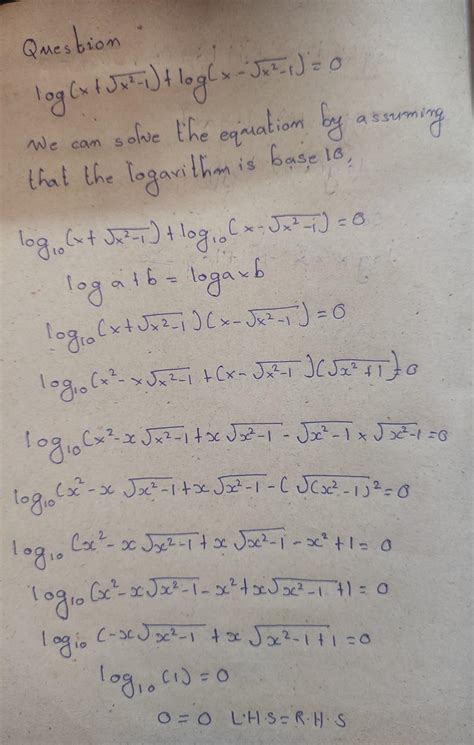 Question
log(x+√x²-1)+log(x-√x²-1)=0
We can solve the equation by assuming
that the logarithm is base 10.
log₁₀(x+√x²-1)+log₁₀(x-√x²-1)=0
log a+b = log a×b
log₁₀(x+√x²-1)(x-√x²-1)=0
log₁₀(x²-x√x²-1+(x-√x²-1)(√x²+1)=0
log₁₀(x²-x√x²-1+x√x²-1-√x²-1×√x²-1=0
log₁₀(x²-x√x²-1+x√x²-1-(√(x²-1)²=0
log₁₀(x²-x√x²-1+x√x²-1-x²+1=0
log₁₀(x²-x√x²-1-x²+x√x²-1+1=0
log₁₀(-x√x²-1+x√x²-1+1=0
log₁₀(1)=0
0=0 L.H.S=R.H.S